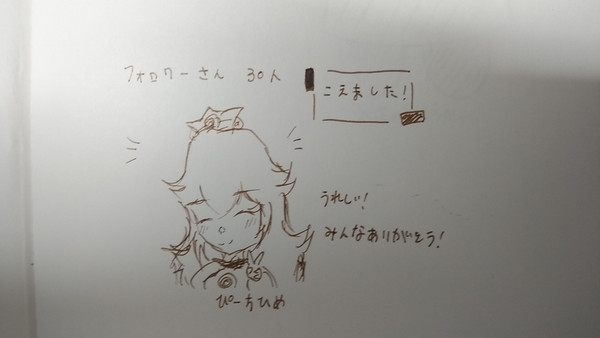 フォロワーさん 30人
こえました!
うれしい!
みんなありがとう!
ぴーちひめ